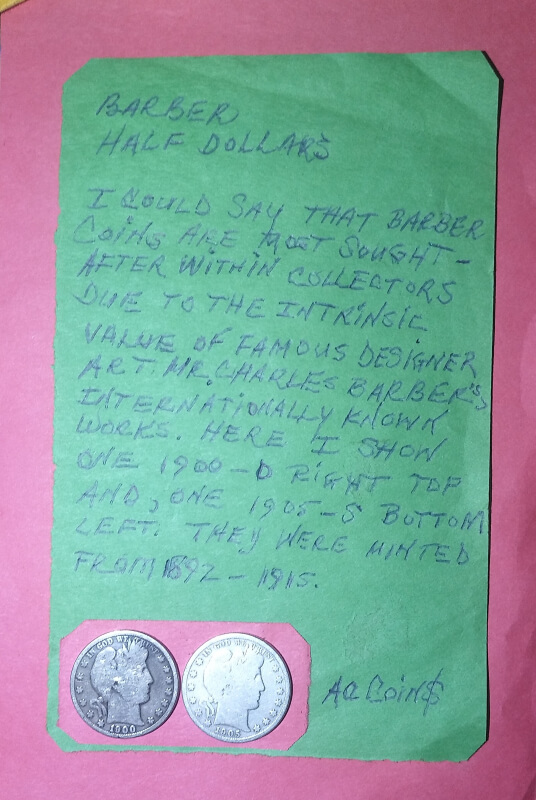 BARBER
HALF DOLLARS
I COULD SAY THAT BARBER
COINS ARE MOST SOUGHT-
AFTER WITHIN COLLECTORS
DUE TO THE INTRINSIC
VALUE OF FAMOUS DESIGNER
ART. MR. CHARLES BARBER'S,
INTERNATIONALLY KNOWN
WORKS. HERE I SHOW
ONE 1900-O RIGHT TOP
AND, ONE 1905-S BOTTOM
LEFT. THEY WERE MINTED
FROM 1892-1915.
IN GOD WE TRUST
1900
IN GOD WE TRUST
1905
AC COIN$